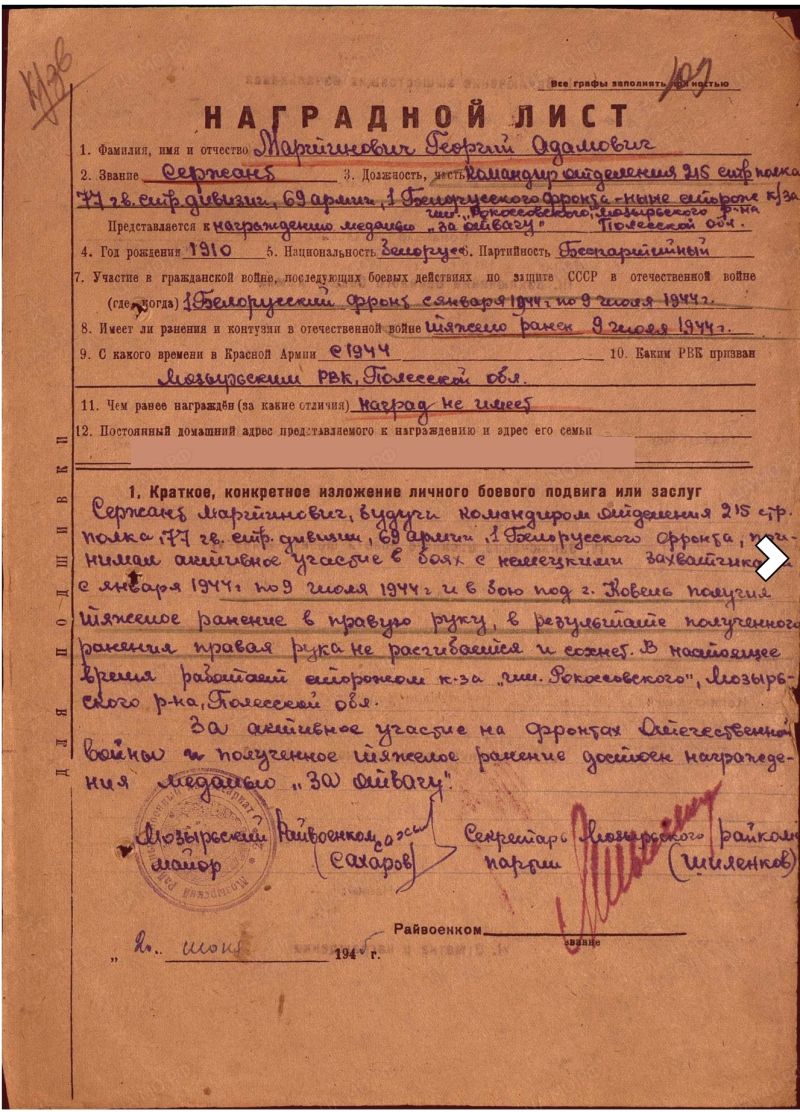 Все графы заполнять полностью
НАГРАДНОЙ ЛИСТ
1. Фамилия, имя и отчество Мартинович Георгий Адамович
2. Звание Сержант 3. Должность, часть Командир отделения 215 стр. полка
77 гв. стр. дивизии, 69 армии, 1 Белорусского фронта - ныне сторож к/за
им. "Рокоссовского", Мозырьского р-на
Представляется к награждению медалью "За отвагу" Полесской обл.
4. Год рождения 1910 5. Национальность Белорус 6. Партийность Беспартийный
7. Участие в гражданской войне, последующих боевых действиях по защите СССР в отечественной войне
(где, когда) 1 Белорусский фронт с января 1944 г. по 9 июля 1944 г.
8. Имеет ли ранения и контузии в отечественной войне тяжело ранен 9 июля 1944 г.
9. С какого времени в Красной Армии С 1944 10. Каким РВК призван
Мозырьским РВК, Полесской обл.
11. Чем ранее награждён (за какие отличия) наград не имеет
12. Постоянный домашний адрес представляемого к награждению и адрес его семьи
1. Краткое, конкретное изложение личного боевого подвига или заслуг
Сержант Мартинович, будучи командиром отделения 215 стр.
полка, 77 гв. стр. дивизии, 69 армии, 1 Белорусского фронта, при-
нимал активное участие в боях с немецкими захватчиками
с января 1944 г по 9 июля 1944 г и в бою под г. Ковель получил
тяжелое ранение в правую руку, в результате полученного
ранения правая рука не разгибается и сохнет. В настоящее
время работает сторожом к-за "им. Рокоссовского", Мозырь-
ского р-на, Полесской обл.
За активное участие на фронтах Отечественной
войны и полученное тяжелое ранение достоен награжде-
ния медалью "За отвагу".
Мозырьский Райвоенком Секретарь Мозырьского райкома
майор (Сахаров) партии (Шиленков)
Райвоенком
звание
"2". июня 1945 г.
ДЛЯ ПОДШИВКИ